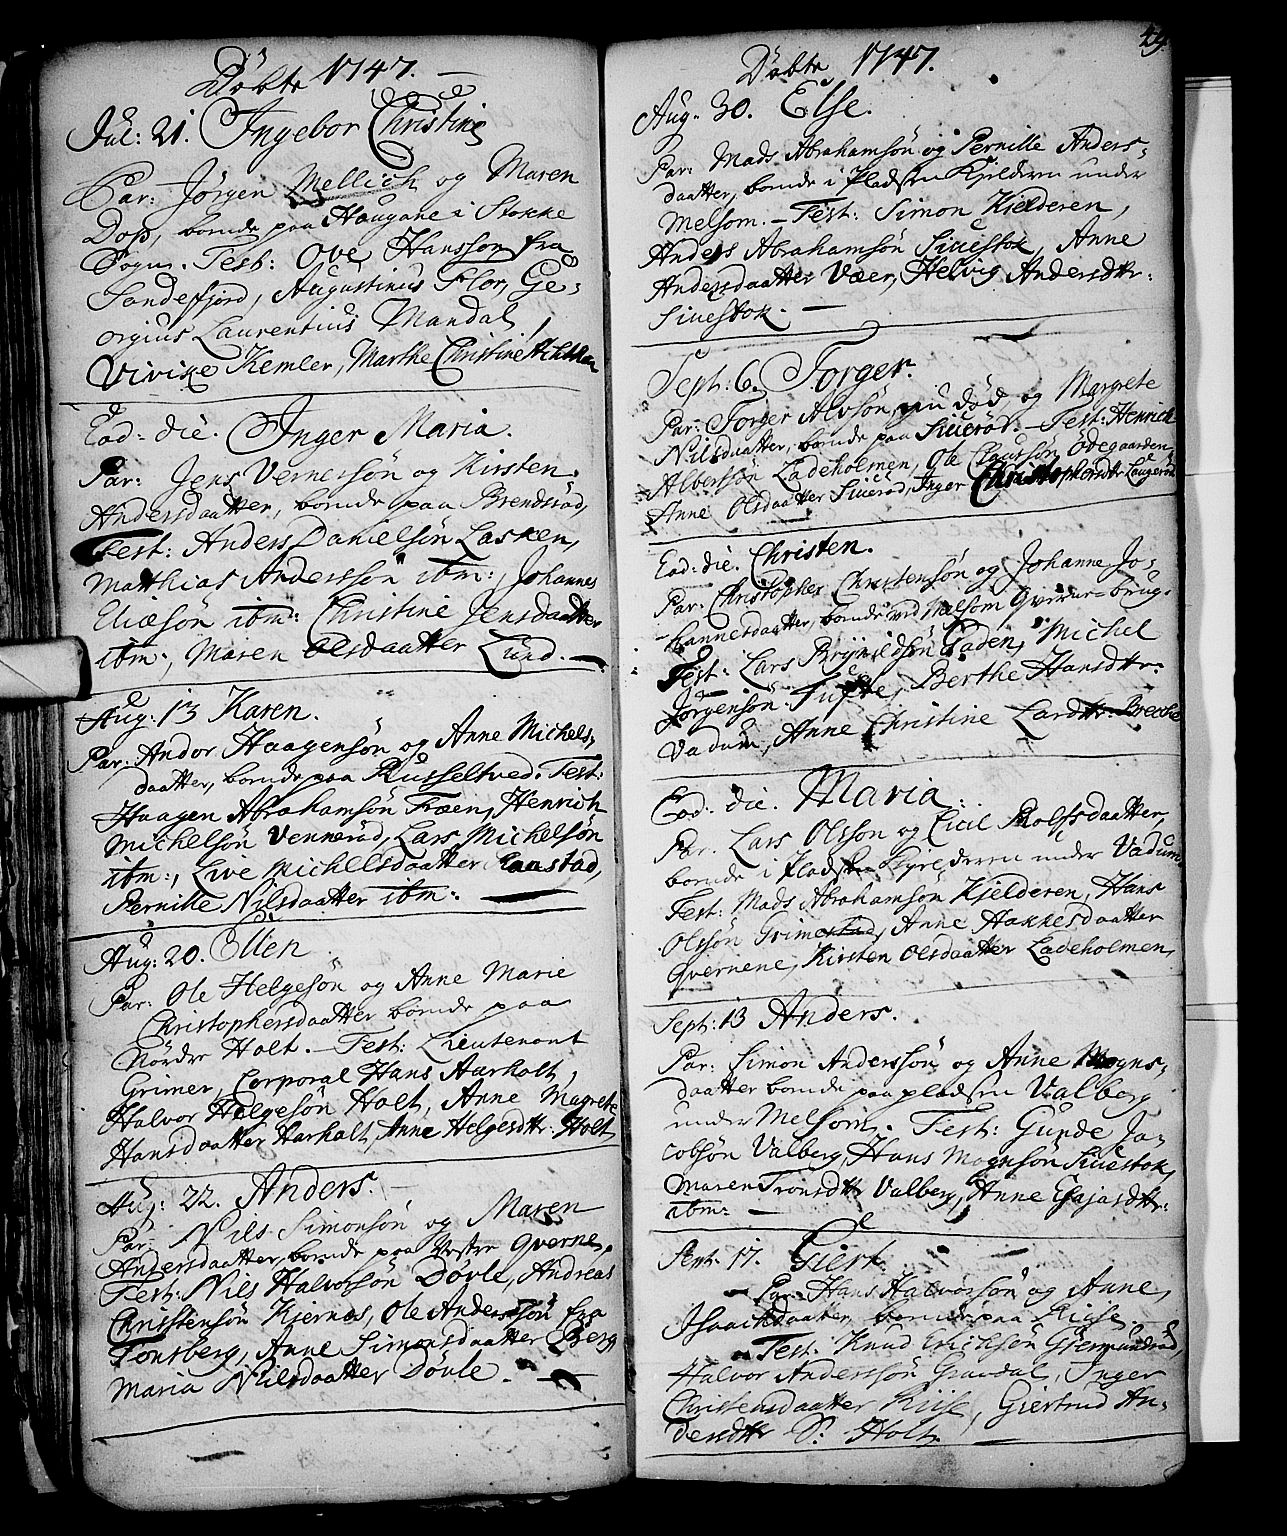 Döbte 1747.
Jul: 21. Ingebor Christine
Par: Jörgen Mellich og Maren
Dop, boende paa Haugane i Stokke
Sogn. Test: Ove Hanssøn fra
Sandefjord, Augustinus Flor, Ge-
orgius Laurentius Mandal,
Vivike Kemler, Marthe Christine
Eod: die. Inger Maria.
Par: Jens Vernersön og Kirsten
Andersdaatter, boende paa Brendsröd,
Test: Anders Danielsön Lasken,
Matthias Anderssön ibm:, Johannes
Eliæsön ibm: Christine Jensdaatter
ibm:, Maren Olsdaatter Lund.
Aug: 13 Karen.
Par: Andor Haagensön og Anne Michels-
daatter, boende paa Russeltved. Test:
Haagen Abrahamsön Fræen, Henrich
Michelsön Venneröd, Lars Michelsön
ibm:, Live Michelsdaatter Raastad,
Pernille Nilsdaatter ibm:
Aug: 20. Ellen
Par: Ole Helgesön og Anne Marie
Christophersdaatter boende paa
Nördre Holt. Test: Lieutenant
Grimer, Corporal Hans Aarholt,
Halvor Helgesön Holt, Anne Magrete
Hansdaatter Aarholt, Anne Helgesdtr: Holt
Aug: 22. Anders.
Par: Nils Simonsön og Maren
Andersdaatter, boende paa Vestre Qverne,
Test: Nils Halvorsön Dövle, Andreas
Christensön Kjernaas, Ole Anderssön fra
Tönsberg, Anne Simonsdaatter Berg
Maria Nilsdaatter Dövle.
49.
Döbte 1747.
Aug. 30. Else.
Par: Mads Abrahamsön og Pernille Anders-
daatter, boende i Pladsen Kjelderen under
Melsom. Test: Simon Kjelderen,
Anders Abrahamsön Siuestok, Anne
Andersdaatter Væer, Helvig Andersdtr:
Siuestok.
Sept: 6. Torger.
Par: Torger Alvsön, nu död og Margrete
Nilsdaatter, boende paa Siueröd. Test: Henrich
Alberssön Ladeholmen, Ole Claussön Ödegaarden
Anne Olsdaatter Siueröd, Inger Christophersdtr Laugeröd
Eod: die. Christen.
Par: Christopher Christensön og Johanne Jo-
hannesdaatter, boende ved Melsom Qverne-brug.
Test: Lars Brynildsön Laden, Michel
Jörgensön Tufte, Berthe Hansdtr:
Vadum, Anne Christine Larsdtr: Brecke
Eod: die. Maria.
Par. Lars Olssön og Cicil Rolfsdaatter,
boende i Pladsen under Vadum
Test: Mads Abrahamsön Kjelderen, Hans
Olssön Grimestad, Anne Hakkesdaatter
Qvernene, Kirsten Olsdaatter Ladeholmen,
Sept: 13 Anders.
Par: Simon Anderssön og Anne Mogns-
daatter boende paa pladsen Valberg
under Melsom. Test: Gunde Ja-
cobsön Valberg, Hans Mognsön Siuestok,
Maren Tronsdtr Valberg, Anne Esajasdtr:
ibm:
Sept: 17. Giert.
Par: Hans Halvorsön og Anne
Isaachdaatter boende paa Riise
Test: Knud Erichsön Giermundröd,
Halvor Anderssön Gravdal, Inger
Christensdaatter Riise, Giertrud An-
dersdtr S: Holt